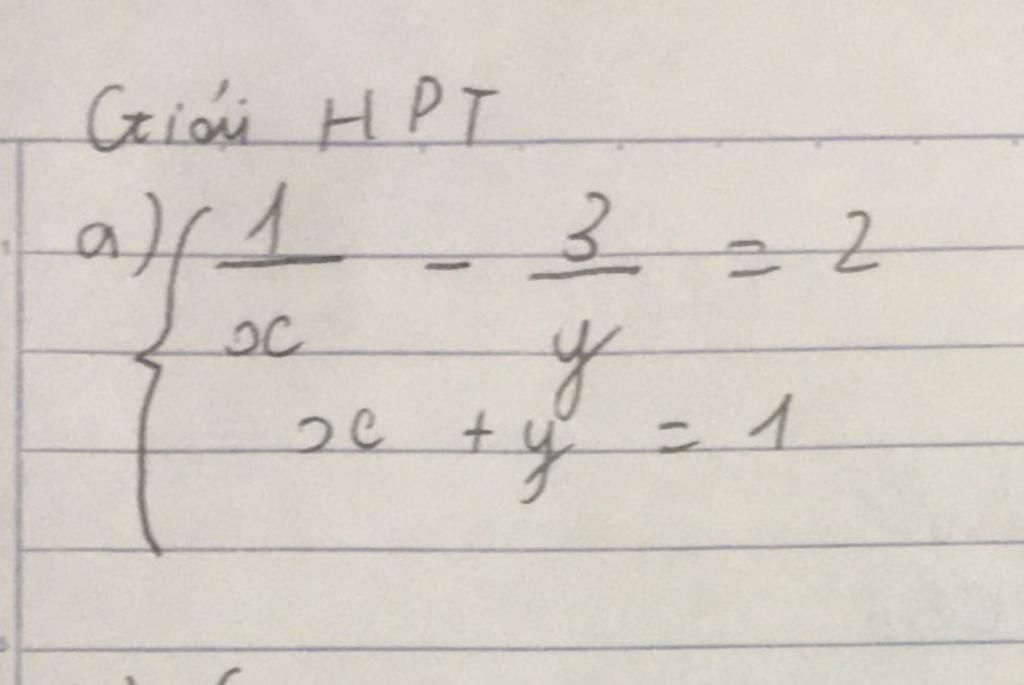 Giải HPT
a) { 1/x - 3/y = 2
x + y = 1